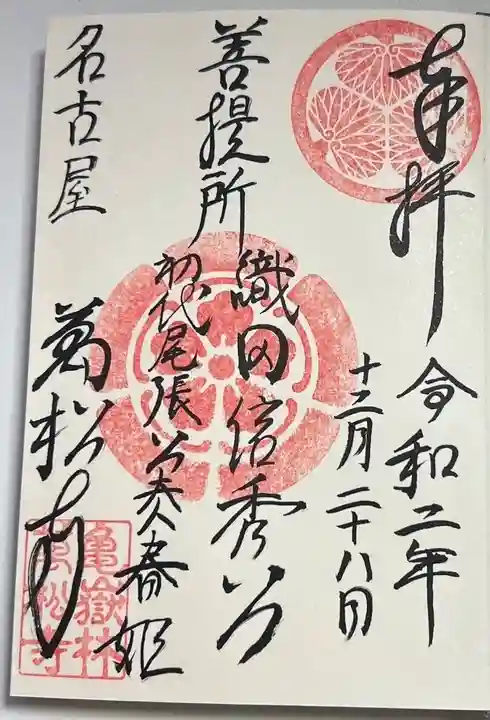 奉拝
令和二年
十二月二十八日
菩提所
織田信秀公
初代尾張公夫人春姫
名古屋
萬松寺
亀嶽林
萬松寺